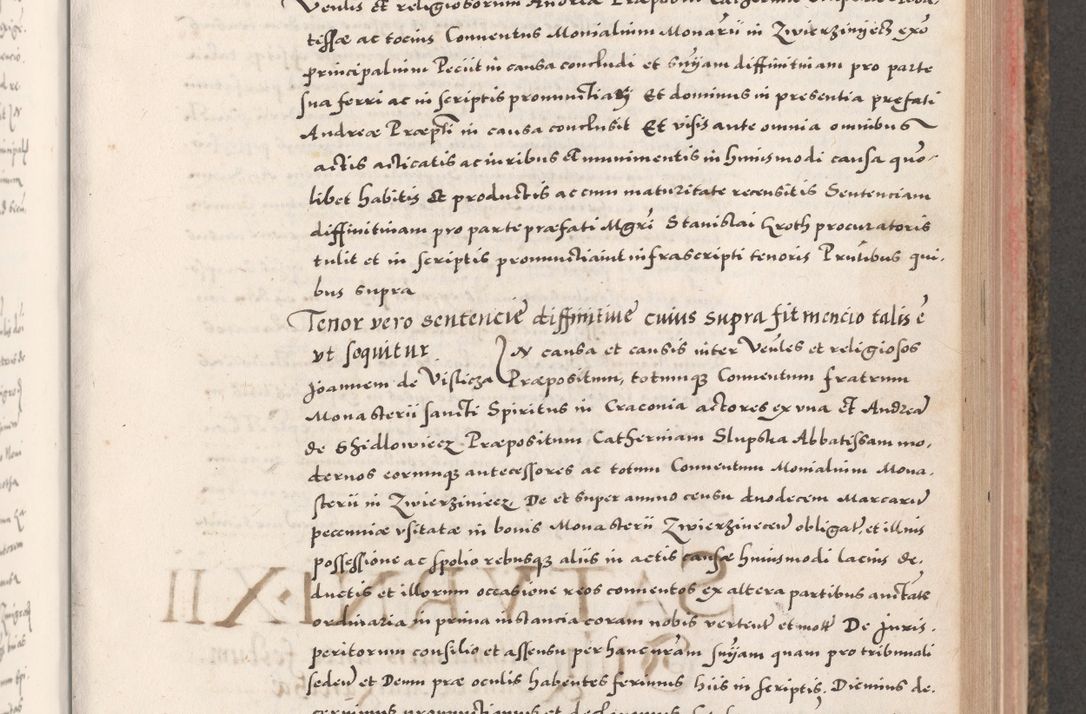 Venlis et religiosorum Andreæ Præpositi
tessæ ac tocius Conventus Monialium Monarii in Zwierziniecz exo
principalium Peciit in causa concludi et snÿam diffinitivam pro parte
sua ferri ac in scriptis pronunctiarj Et dominus in presentia præfati
Andreæ Præpti in causa conclusit Et visis ante omnia omnibus
actis acticatis ac iuribus et munimentis in huiusmodi causa quo-
libet habitis et productis ac cum maturitate recensitis Sentenciam
diffinitivam pro parte præfati Mgri Stanislai Groth procuratoris
tulit et in scriptis pronunctiavit infrascripti tenoris Prntibus qui-
bus supra
Tenor vero sentencie diffinitive cuius supra fit mencio talis e
ut sequitur IN causa et causis inter Venles et religiosos
Joannem de Vislicza Præpositum, totumq Conventum fratrum
Monasterii sancti Spiritus in Craconia actores ex una et Andrea
de Shidlowiecz Præpositum Catherinam Slupska Abbatissam mo-
dernos eorumq antecessores ac totum Conventum Monialium Mona-
sterii in Zwierziniecz De et super annuo censu duodecem Marcaru
pecuniæ usitatæ in bonis Monasterii Zwierzinecen obligat, et illius
possessione ac spolio rebusq aliis in actis causæ huiusmodi lacius de-
ductis et illorum occasione reos conventos ex altera partibus auctate
ordinaria in prima instancia coram nobis verten et mott De Juris-
peritorum consilio et assensu per hanc nram snÿam quam pro tribunali
seden et Deum præ oculis habentes ferimus hiis in scriptis. Dicimus de-
cernimus pronunctiamus et declaramus